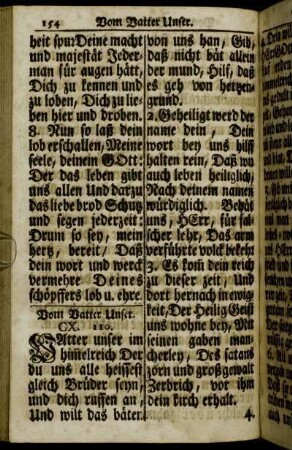 154 Vom Vatter Unser.
heit spur Deine macht
und majestät Jeder-
man für augen hätt,
Dich zu kennen und
zu loben, Dich zu lie-
ben hier und droben.
8. Nun so laß dein
lob erschallen, Meine
seele, deinem GOtt:
Der das leben gibt
uns allen Und darzu
das liebe brod Schutz
und segen jederzeit:
Drum so sey, mein
hertz, bereit, Daß
dein wort und werck
vermehre Deines
schöpffers lob u. ehre.
Vom Vatter Unser.
CX. 110.
VAtter unser im
himmelreich Der
du uns alle heissest
gleich Brüder seyn,
und dich ruffen an,
Und wilt das bäten
von uns han, Gib,
daß nicht bät allein
der mund, Hilf, daß
es geh von hertzen-
grund.
2. Geheiligt werd der
name dein, Dein
wort bey uns hilff
halten rein, Daß wir
auch leben heiliglich,
Nach deinem namen
würdiglich. Behüt
uns, HErr, für fal-
scher lehr, Das arm
verführte volck bekehr
3. Es kom̃ dein reich
zu dieser zeit, Und
dort hernach in ewig-
keit, Der Heilig Geist
uns wohne bey, Mit
seinen gaben man-
cherley, Des satans
zorn und groß gewalt
Zerbrich, vor ihm
dein kirch erhalt.
4.